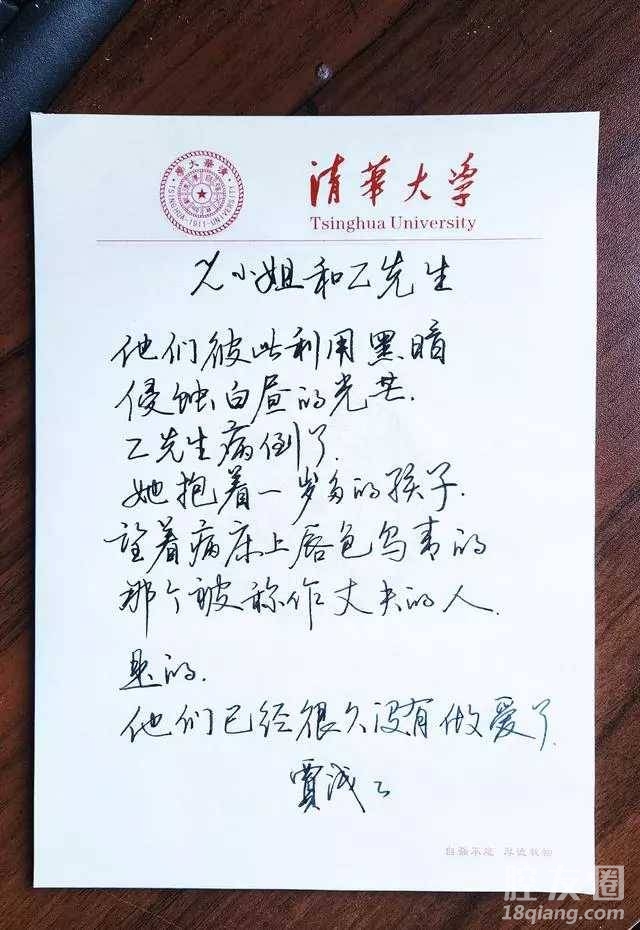 清華大學
TSINGHUA-1911-UNIVERSITY
清華大学
Tsinghua University
尤小姐和乙先生
他们彼此利用黑暗
侵蚀白昼的光芒.
乙先生病倒了.
她抱着一岁多的孩子.
望着病床上唇色乌青的
那个被称作丈夫的人.
是的.
他们已经很久没有做爱了.
贾浅
自强不息 厚德载物
18qiang.com